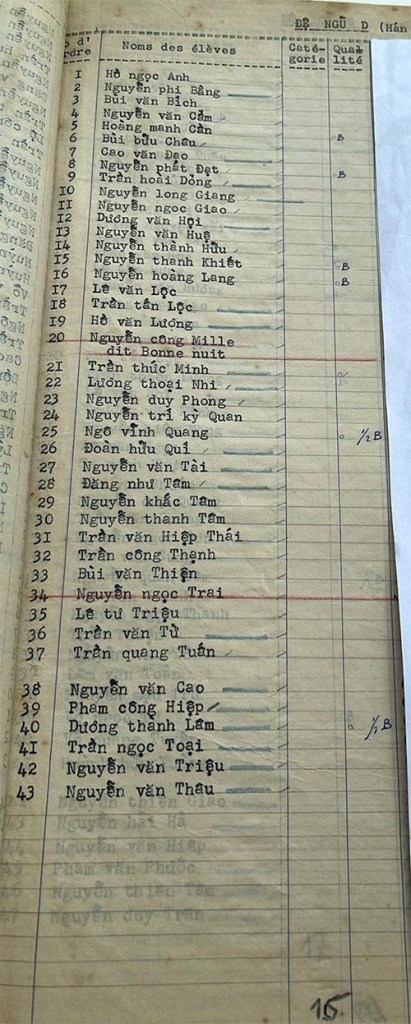 ĐỆ NGŨ D (Hán
d'
rdre
Noms des élèves
Caté-
gorie
Qua-
lité
1 Hồ ngọc Anh
2 Nguyễn phi Bằng
3 Bùi văn Bích
4 Nguyễn văn Cẩm
5 Hoàng manh Cần
6 Bùi bửu Châu B
7 Cao văn Đạo
8 Nguyễn phát Đạt
9 Trần hoài Đông B
10 Nguyễn long Giang
11 Nguyễn ngọc Giao
12 Dương văn Hội
13 Nguyễn văn Huệ
14 Nguyễn thành Hữu
15 Nguyễn thanh Khiết B
16 Nguyễn hoàng Lang B
17 Lê văn Lộc
18 Trần tấn Lộc
19 Hồ văn Lương
20 Nguyễn công Mille
dit Bonne nuit
21 Trần thúc Minh
22 Lương thoại Nhi
23 Nguyễn duy Phong
24 Nguyễn tri kỷ Quan
25 Ngô vĩnh Quang 1/2 B
26 Đoàn hữu Qui
27 Nguyễn văn Tài
28 Đăng như Tâm
29 Nguyễn khắc Tâm
30 Nguyễn thanh Tâm
31 Trần văn Hiệp Thái
32 Trần công Thạnh
33 Bùi văn Thiện
34 Nguyễn ngọc Trai
35 Lê tư Triệu
36 Trần văn Từ
37 Trần quang Tuấn
38 Nguyễn văn Cao
39 Phạm công Hiệp
40 Dương thành Lâm 1/2 B
41 Trần ngọc Toại
42 Nguyễn văn Triệu
43 Nguyễn văn Thâu
Nguyễn thiện Giao
Nguyễn hải Hà
Nguyễn văn Hiệp
Phạm văn Phước
Nguyễn thiện Tâm
Nguyễn duy Trân
16